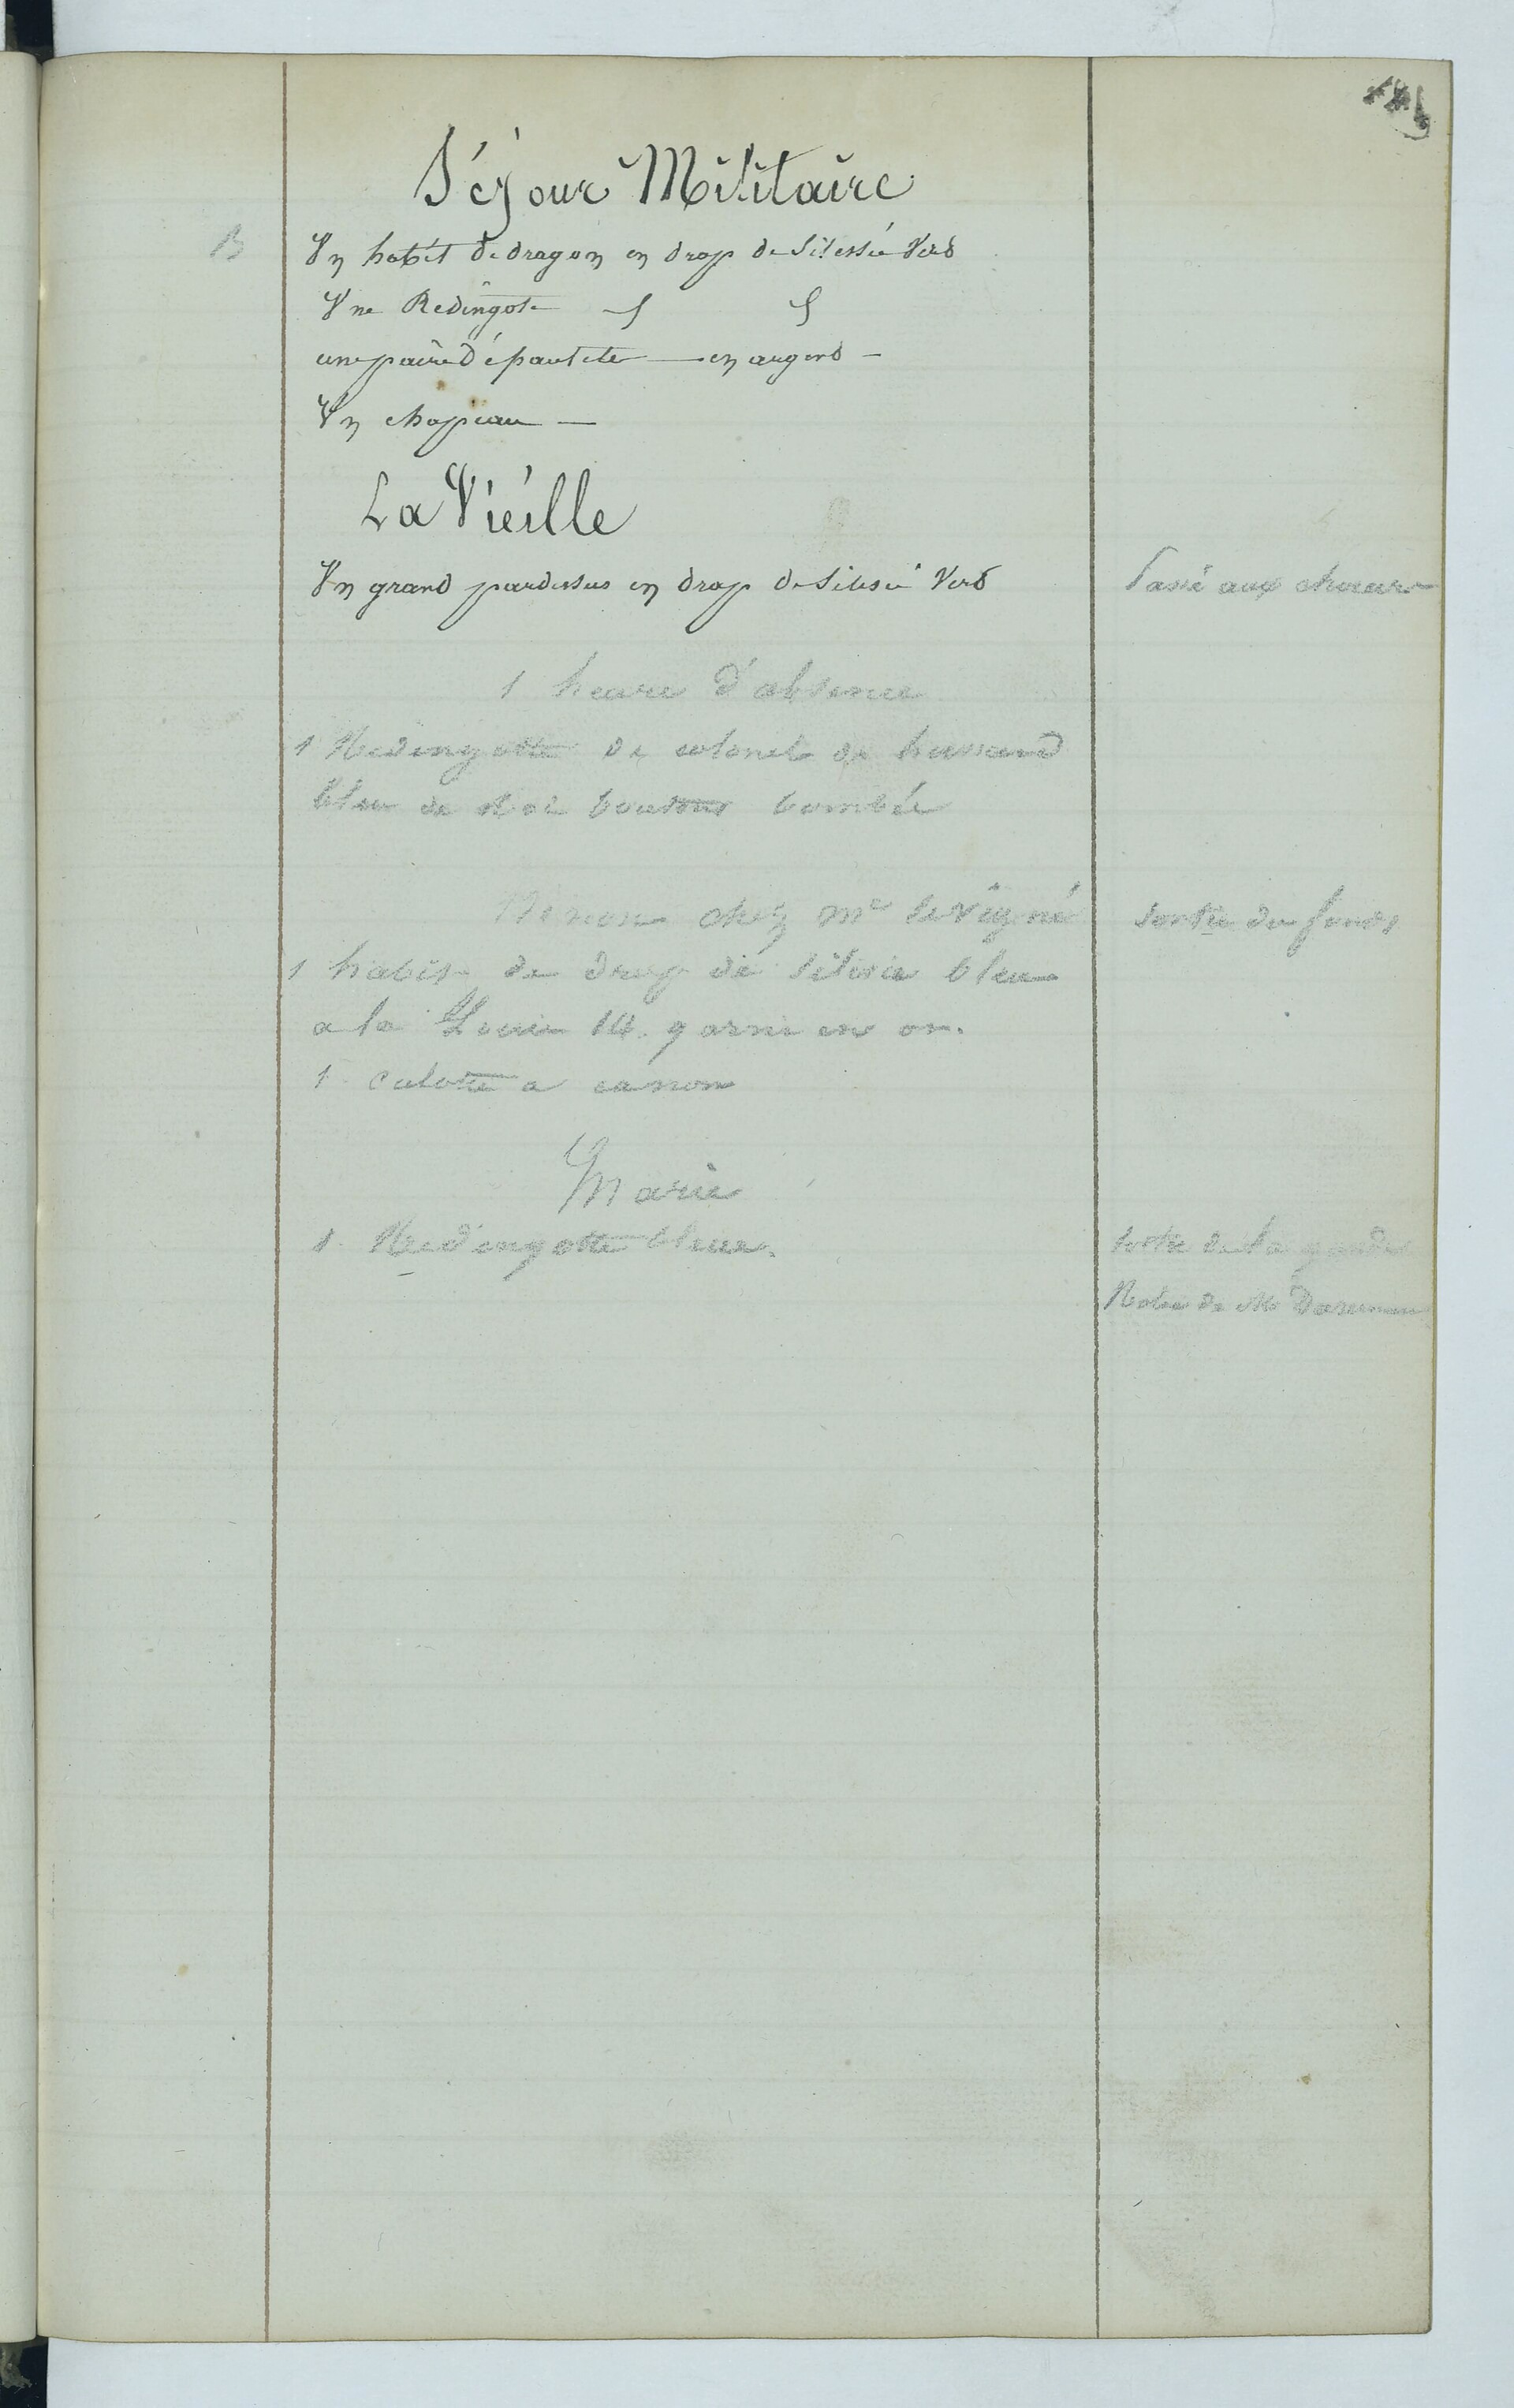 Séjour Militaire
B
Un habit de dragon en drap de Silessie Verd
Une Redingote
une paire d'épaulete — en argend —
Un chapeau —
La Vieille
Un grand pardessus en drap de Silesie Verd
Passé aux chœurs
1 heure d'absence
1 Redingotte de colonel de hussard
bleu de Roi boutons bombée
Ninon chez Me Sevigné
sortie du fonds
1 habit de drap de Silesie bleu
a la Louis 14. garni en or.
1 culotte a canon
Marie
1 Redingotte bleue.
sortie de la garde
Robe de Mr